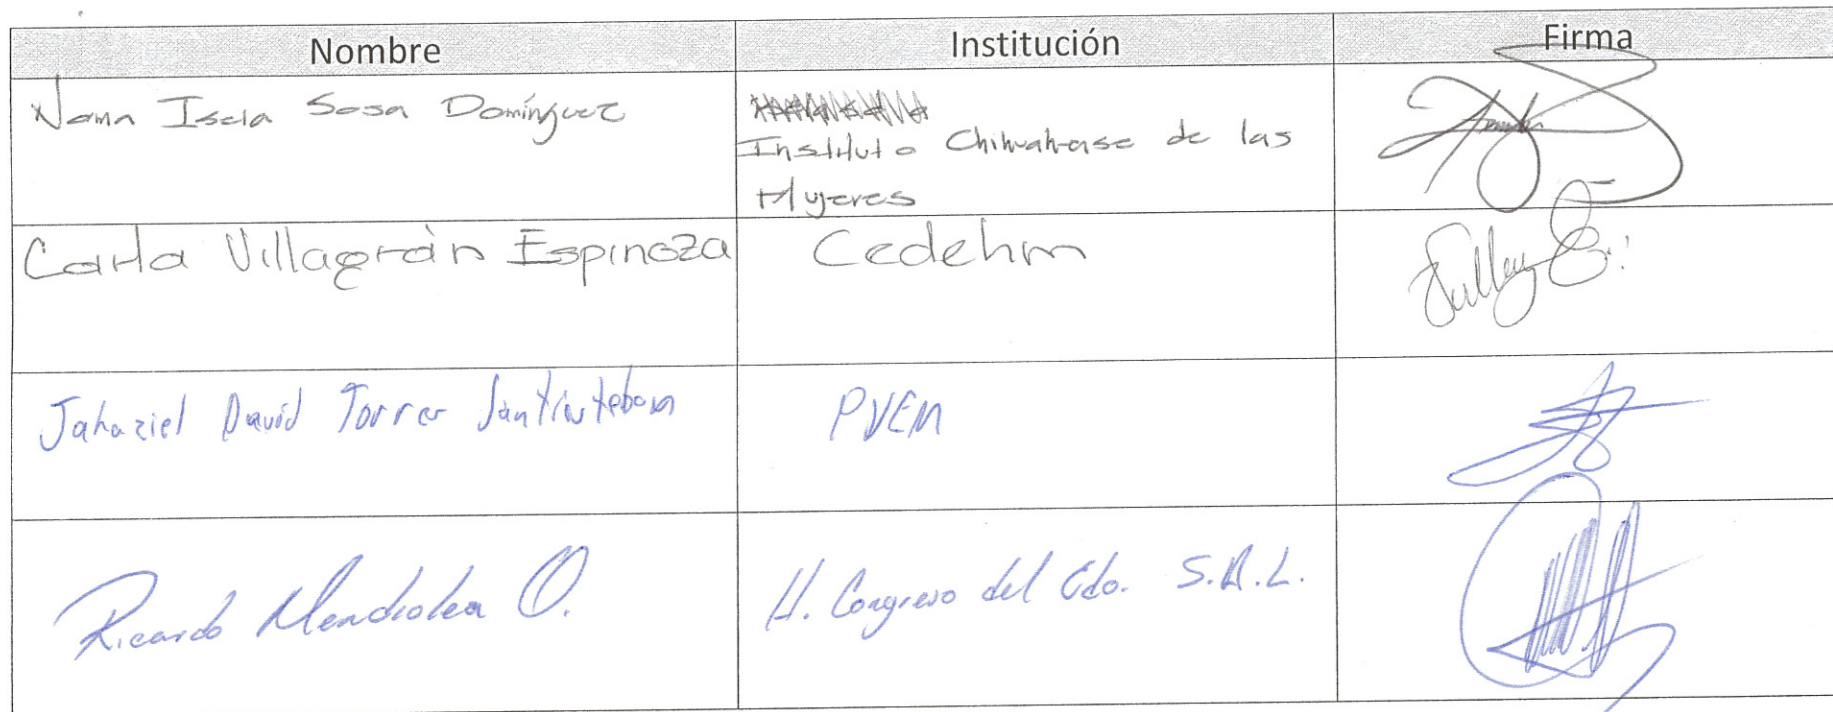 Nombre Institución Firma
Norma Isela Sosa Domínguez
Instituto Chihuahuense de las
Mujeres
Carla Villagrán Espinoza Cedehm
Jahaziel David Torres PVEM
Ricardo Mendiolea O. H. Congreso del Edo. S.A.L.